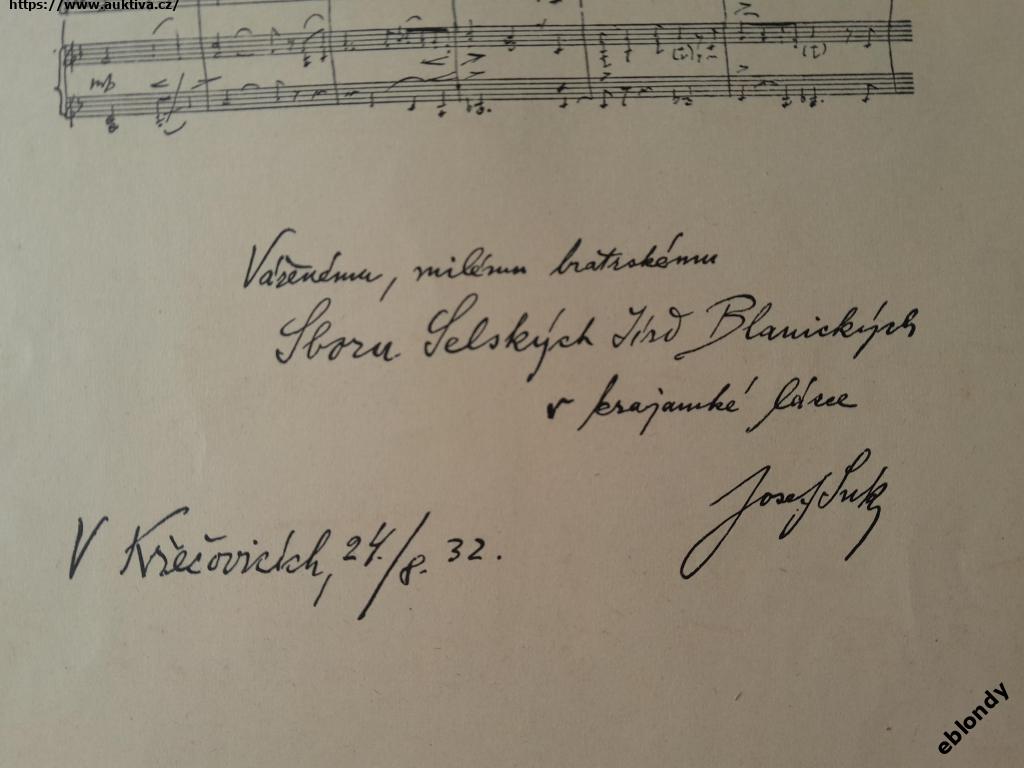 https://www.auktiva.cz/
mp
Váženému, milému bratrskému
Sboru Selských Jízd Blanických
v krajanské lásce
Josef Suk
V Křečovicích, 24./8. 32.
eblondy